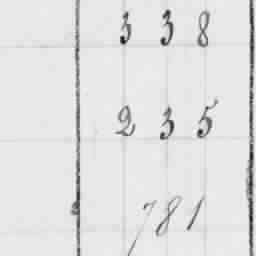 338
235
781